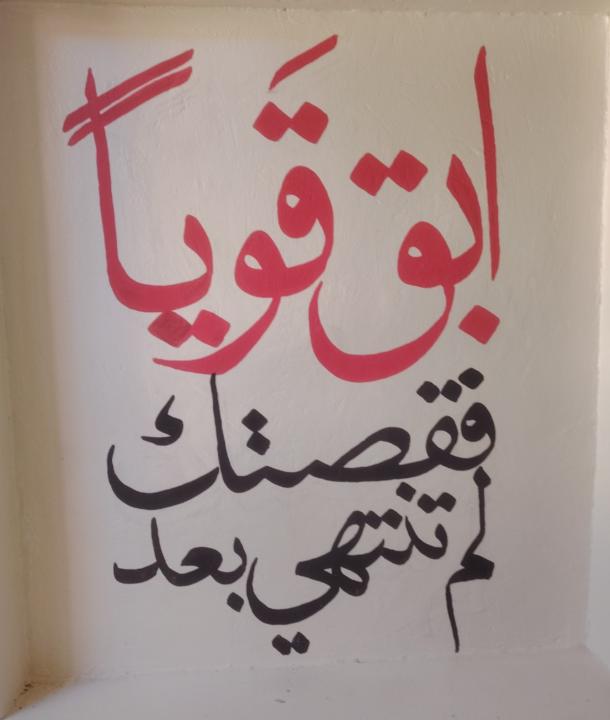 ابق قَوياً
فقصتك
لم تنتهي بعد